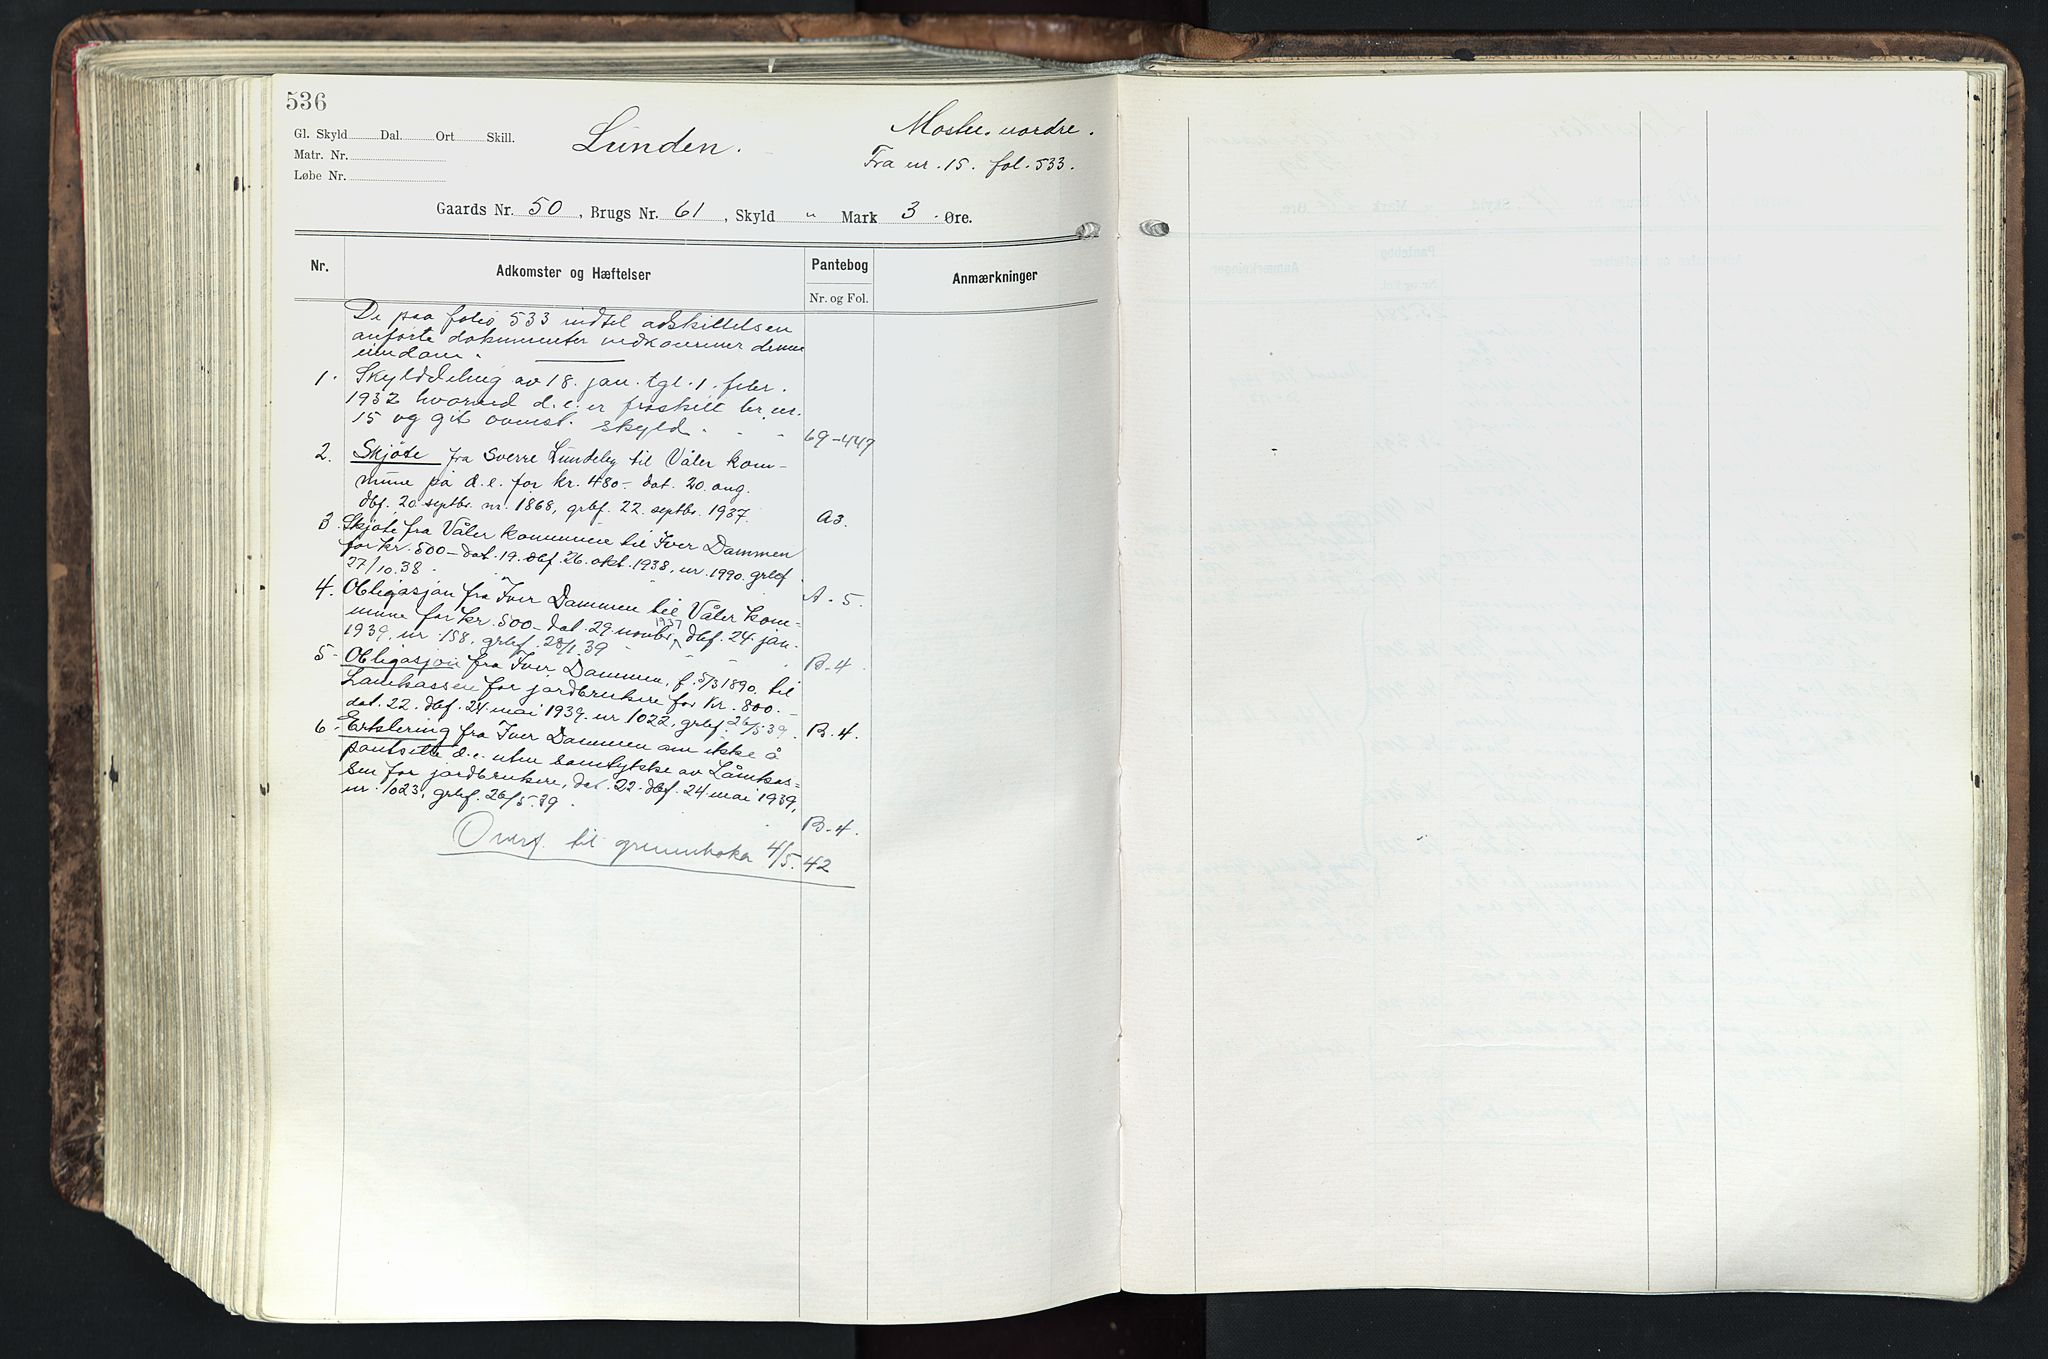 536
Gl. Skyld Dal. Ort Skill.
Matr. Nr.
Løbe Nr.
Lunden.
nordre.
Fra nr. 15. fol. 533.
Gaards Nr. 50, Brugs Nr. 61, Skyld " Mark 3 Øre.
Nr.
Adkomster og Hæftelser
Pantebog
Nr. og Fol.
Anmærkninger
De paa folio 533 indtil adskillelsen
anførte dokumenter vedkommer denne
eiendom.
1. Skylddeling av 18. jan. tgl. 1. febr.
1932 hvorved d.e. er fraskilt br. nr.
15 og git ovenst. skyld. - - 69-449
2. Skjøte fra Sverre Lundeby til Våler kom-
mune på d.e. for kr. 480- dat. 20. aug.
dbf. 20. septbr. nr. 1868, grbf. 22. septbr. 1937. A3.
3. Skjøte fra Våler kommune til Iver Dammen
for kr. 500- dat. 19. dbf. 26. okt. 1938, nr. 1990. grbf
27/10.38. A-5.
4. Obligasjon fra Iver Dammen til Våler kom-
mune for kr. 500- dat. 29. novbr. 1937, dbf. 24. jan.
1939, nr. 158, grbf. 28/1.39 B-4.
5- Obligasjon fra Iver Dammen, f. 5/3 1890. til
Lånekassen for jordbrukere for kr. 800.-
dat. 22. dbf. 24. mai 1939. nr 1022, grbf. 26/5.39. B-4.
6- Erklering fra Iver Dammen om ikke å
pantsette d.e. uten samtykke av Lånekas-
sen for jordbrukere, dat. 22. dbf. 24. mai 1939,
nr. 1023, grbf. 26/5.39. B-4.
Overf. til grunnboka 4/5.42